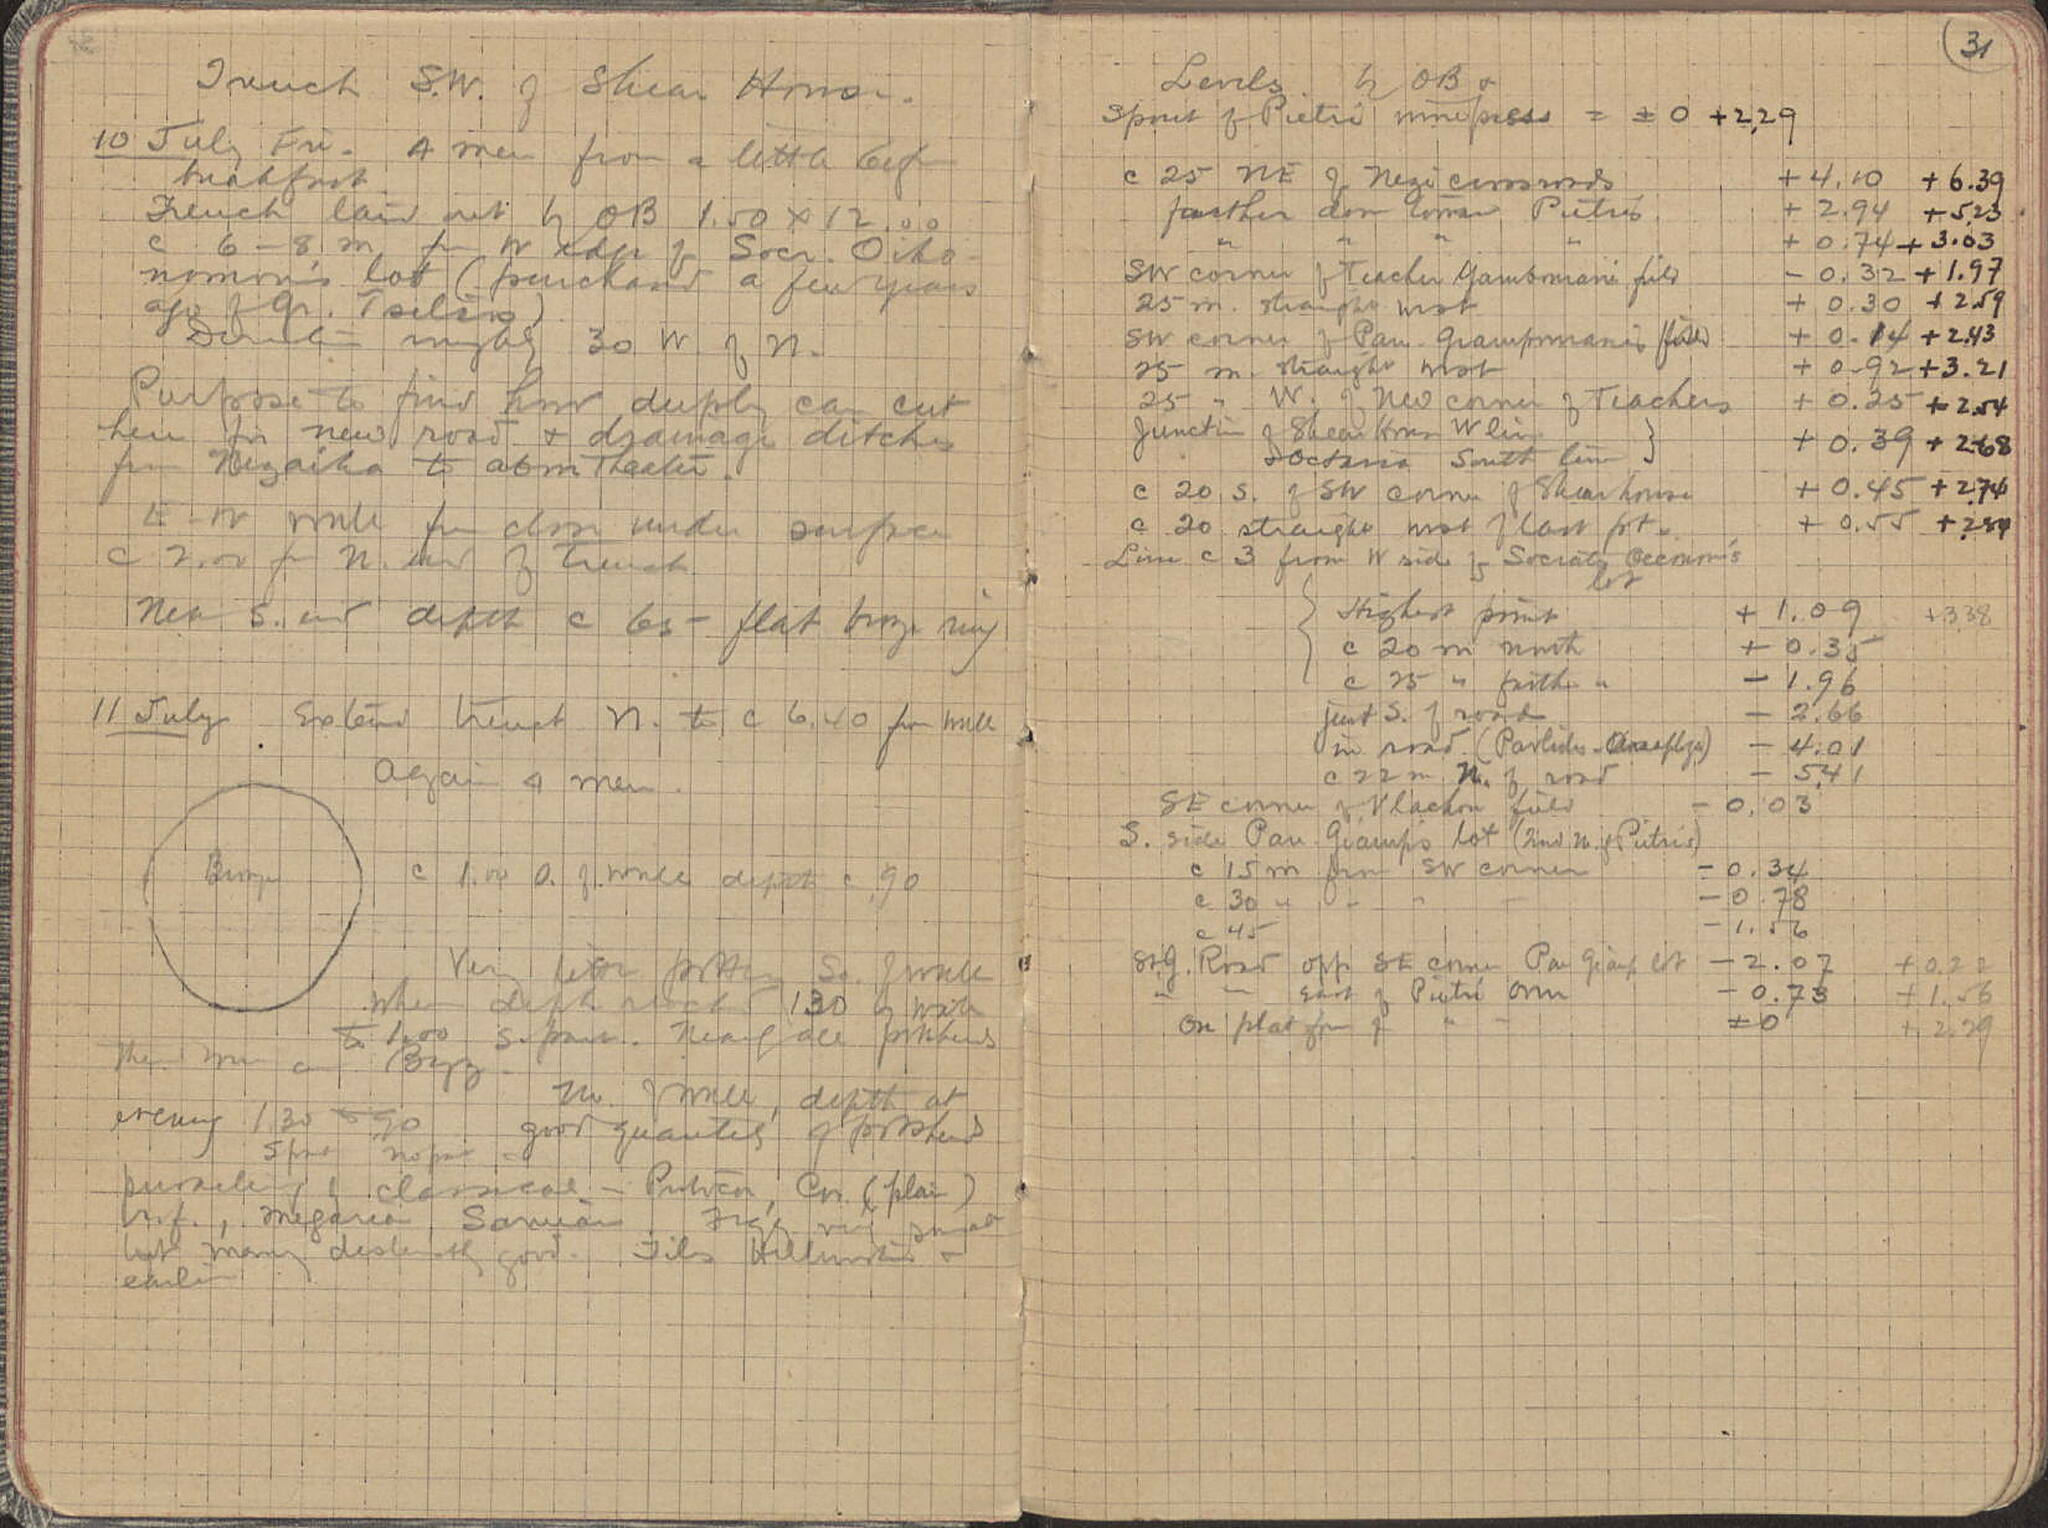 Trench S.W. of Shear House.
10 July Fri. 4 men from a little before
breakfast.
Trench laid out by OB 1.50 x 12.00
c 6-8 m. fr W edge of Socr. Oiko-
nomou's lot (purchased a few years
ago of Gr. Tselios)
Direction roughly 30 W of N.
Purpose to find how deeply can cut
here for new road & drainage ditches
from Nezaika to abm Theater.
E-W wall fn close under surface
c 2.00 fr N. end of trench
Near S. end depth c 65 - flat bronze ring
11 July Extend trench N. to c 6.40 from wall
Again 4 men.
Bronze
c 1.00 S. of wall depth c .90
Very little pottery So. of wall
When depth reached 1.30 by wall
to 1.00 S. part. Nearly all potsherds
there were Byz.
No. of wall, depth at
evening 1.30 to .90 good quantity of potsherds
S part No part
purely classical - Cor. (plain)
r.f., Megarian, Samian. very small
but many distinctly good. Tiles Hellenistic &
earlier
31
Levels. by OB &
Spout of Pietri winepress = ± 0 +2.29
c 25 NE of Nezi crossroads +4.10 +6.39
farther down toward Pietris +2.94 +5.23
" " " " +0.74 +3.03
SW corner of Teacher field -0.32 +1.97
25 m. straight west +0.30 +2.59
SW corner of Pan. field +0.14 +2.43
25 m. straight west +0.92 +3.21
25 " W. of NW corner of Teachers +0.25 +2.54
Junction of Shear House W line
South line } +0.39 +2.68
c 20 S. of SW corner of Shearhouse +0.45 +2.74
c 20 straight west of last pt. +0.55 +2.84
Line c 3 from W side of Socrates Oeconom's
lot
Highest point +1.09 +3.38
c 20 m north +0.35
c 25 " farther " -1.96
just S. of road -2.66
in road -4.01
c 22 m N. of road -5.41
SE corner of Vlachou field -0.03
S. side Pan. Giamp's lot (2nd N. of Pietris)
c 15 m from SW corner -0.34
c 30 " " " " -0.78
c 45 -1.56
Road opp SE corner Pan Giamp lot -2.07 +0.22
" " East of Pietri -0.73 +1.56
On platform of " " ±0 +2.29